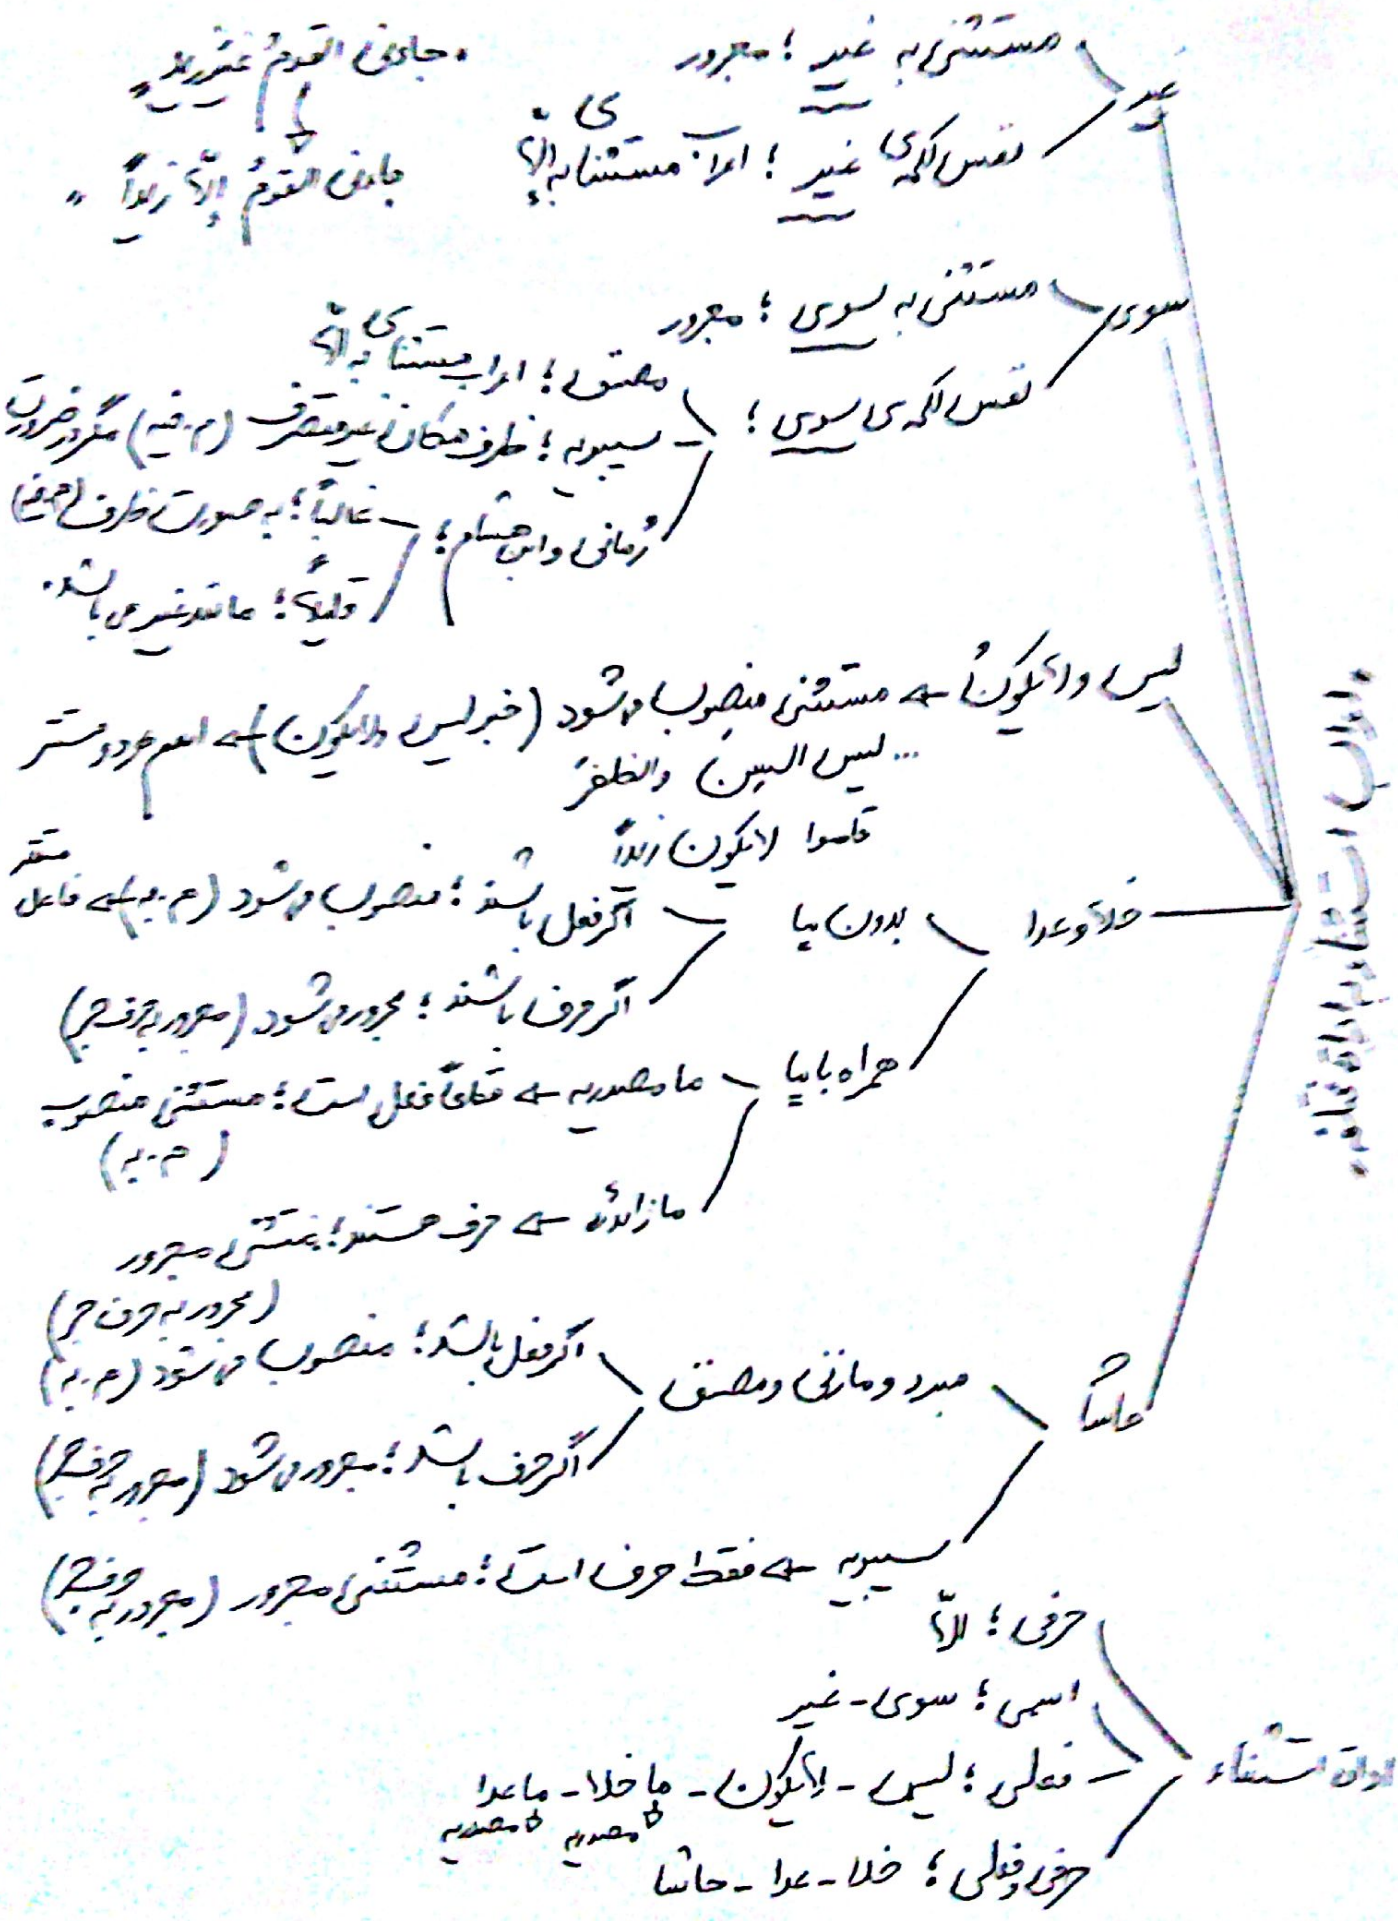 مستثنی به غیر ؛ مجرور
«جاءنی القومُ غیرَ زیدٍ»
غیر
نفس کلمه‌ی غیر ؛ اعراب مستثنای به إلّا
جاءنی القومُ إلّا زیداً »
سوی
مستثنی به سوی ؛ مجرور
نفس کلمه‌ی سوی ؛
مصنف ؛ اعراب مستثنای به إلّا
سیبویه ؛ ظرف مکان غیر متصرف (م.فیه) مگر در ضرورت
رُمانی و ابن هشام ؛
غالباً ؛ به صورت ظرف (م.فیه)
قلیلاً ؛ مانند غیر می باشد.
لیس و لایکونُ ← مستثنی منصوب می شود (خبر لیس و لایکون) ← اسم هر دو مستتر
... لیس السِنَ والظفرَ
قاموا لایکون زیداً
«اعراب استثناء به ادات
خلا و عدا
بدون ما
اگر فعل باشند ؛ منصوب می شود (م.به) ← فاعل مستتر
اگر حرف باشند ؛ مجرور می شود (مجرور به حرف جر)
همراه با ما
ما مصدریه ← قطعاً فعل است ؛ مستثنی منصوب
(م.به)
ما زائده ← حرف هستند ؛ مستثنی مجرور
(مجرور به حرف جر)
حاشا
مبرد و مازنی و مصنف
اگر فعل باشد ؛ منصوب می شود (م.به)
اگر حرف باشد ؛ مجرور می شود (مجرور به حرف جر)
سیبویه ← فقط حرف است ؛ مستثنی مجرور (مجرور به حرف جر)
ادات استثناء
حرفی ؛ إلّا
اسمی ؛ سوی - غیر
فعلی ؛ لیس - لایکون - ما خلا - ما عدا
مصدریه مصدریه
حرفی و فعلی ؛ خلا - عدا - حاشا